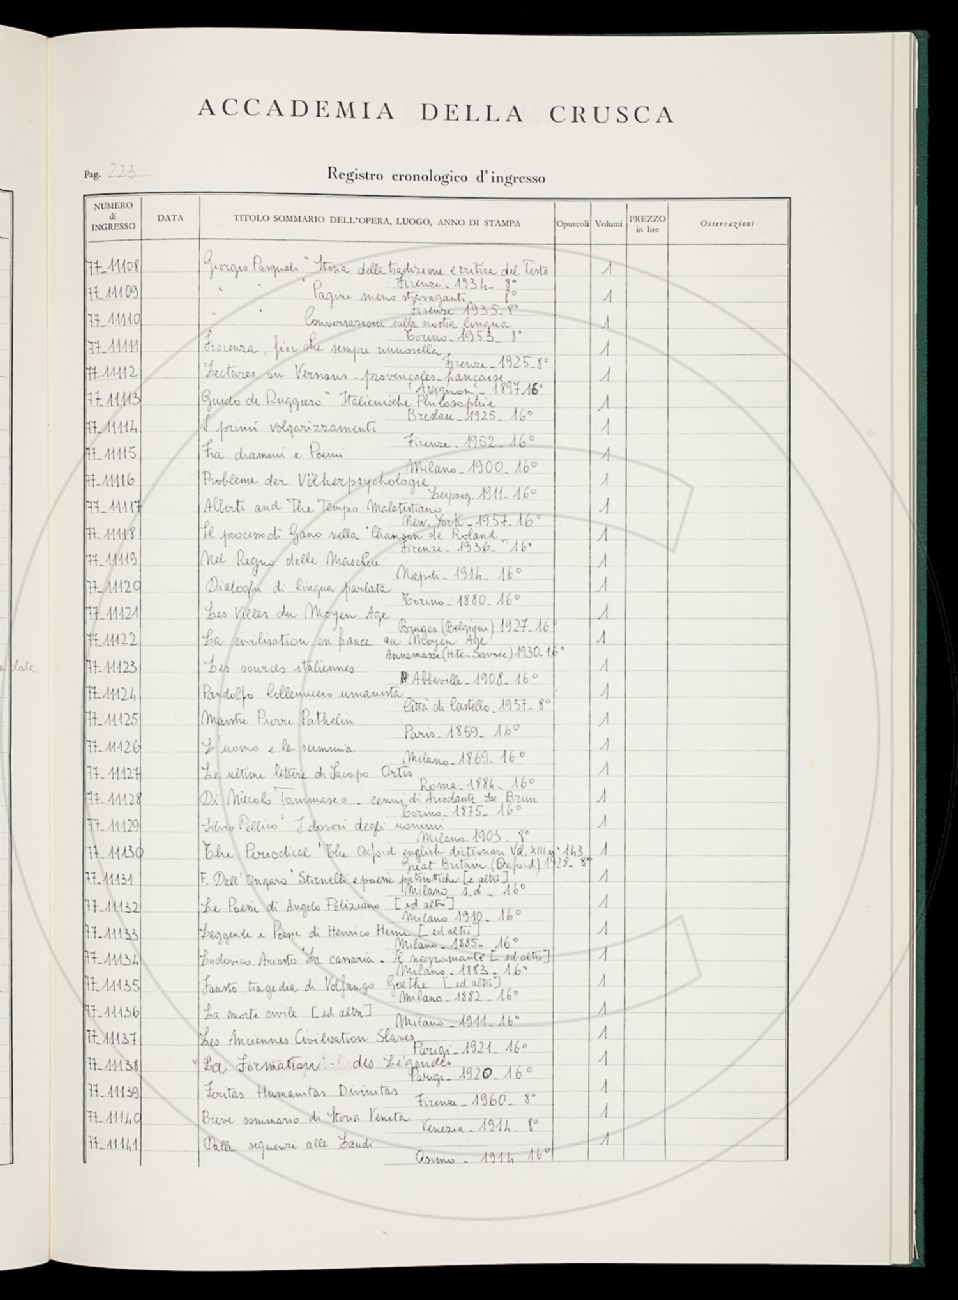 ACCADEMIA DELLA CRUSCA
Pag. 223
Registro cronologico d'ingresso
NUMERO di INGRESSO DATA TITOLO SOMMARIO DELL'OPERA, LUOGO, ANNO DI STAMPA Opuscoli Volumi PREZZO in lire Osservazioni
77_11108 Giorgio Pasquali "Storia della tradizione e critica del Testo 1
Firenze - 1934 - 8°
77_11109 " " "Pagine meno stravaganti 1
Firenze 1935 - 8°
77_11110 " " Conversazioni sulla nostra lingua 1
Torino - 1953 - 8°
77_11111 Fiorenza, fior che sempre rinnovella 1
Firenze - 1925 - 8°
77_11112 Lectures ou Versions - provençales-française 1
"Avignon" - 1897 16°
77_11113 Guido de Ruggiero "Italienische Philosophie 1
Breslau - 1925 - 16°
77_11114 I primi volgarizzamenti 1
Firenze - 1952 - 16°
77_11115 Fra drammi e Poemi 1
Milano - 1900 - 16°
77_11116 Probleme der Völkerpsychologie 1
Leipzig - 1911 - 16°
77_11117 Alberti and The Tempio Malatestiano 1
New. York - 1957 - 16°
77_11118 Il processo di Gano nella "Chanson de Roland 1
Firenze - 1936 - 16°
77_11119 Nel Regno delle Maschere 1
Napoli - 1914 - 16°
77_11120 Dialoghi di lingua parlata 1
Torino - 1880 - 16°
77_11121 Les Villes du Moyen Age 1
Bruges (Belgique) 1927 - 16°
77_11122 La civilisation en france au Moyen Age 1
Annemasse (Hte-Savoie) 1930 - 16°
77_11123 Les sources italiennes 1
Abbeville - 1908 - 16°
77_11124 Pandolfo Collenuccio umanista 1
Città di Castello - 1957 - 8°
77_11125 Maistre Pierre Pathelin 1
Paris - 1859 - 16°
77_11126 L'uomo e la scimmia 1
Milano - 1869 - 16°
77_11127 Le ultime lettere di Jacopo Ortis 1
Roma - 1884 - 16°
77_11128 Di Niccolò Tommaseo - cenni di Ariodante Le Brun 1
Torino - 1875 - 16°
77_11129 Silvio Pellico "I doveri degli uomini 1
Milano - 1903 - 8°
77_11130 The Periodical "The Oxford english dictionari Vol. XIII n° 143 1
Great Britain (Oxford) 1928 - 8°
77_11131 F. Dall'Ongaro "Stornelli e poesie patriottiche [e altri] 1
Milano s.d. - 16°
77_11132 Le Poesie di Angelo Poliziano [ed altri] 1
Milano 1910 - 16°
77_11133 Leggende e Poesie di Henrico Heine [ed altri] 1
Milano - 1885 - 16°
77_11134 Lodovico Ariosto "La cassaria - Il negromante [ed altri] 1
Milano - 1883 - 16°
77_11135 Fausto tragedia di Volfango Goethe [ed altri] 1
Milano - 1882 - 16°
77_11136 La morte civile [ed altri] 1
Milano - 1911 - 16°
77_11137 Les Anciennes Civilisation Slaves 1
Parigi - 1921 - 16°
77_11138 La Formation des Légendes 1
Parigi - 1920 - 16°
77_11139 Feritas Humanitas Divinitas 1
Firenze - 1960 - 8°
77_11140 Breve sommario di Storia Veneta 1
Venezia - 1914 - 8°
77_11141 Dalle sequenze alle Laudi 1
Osimo - 1914 16°
date